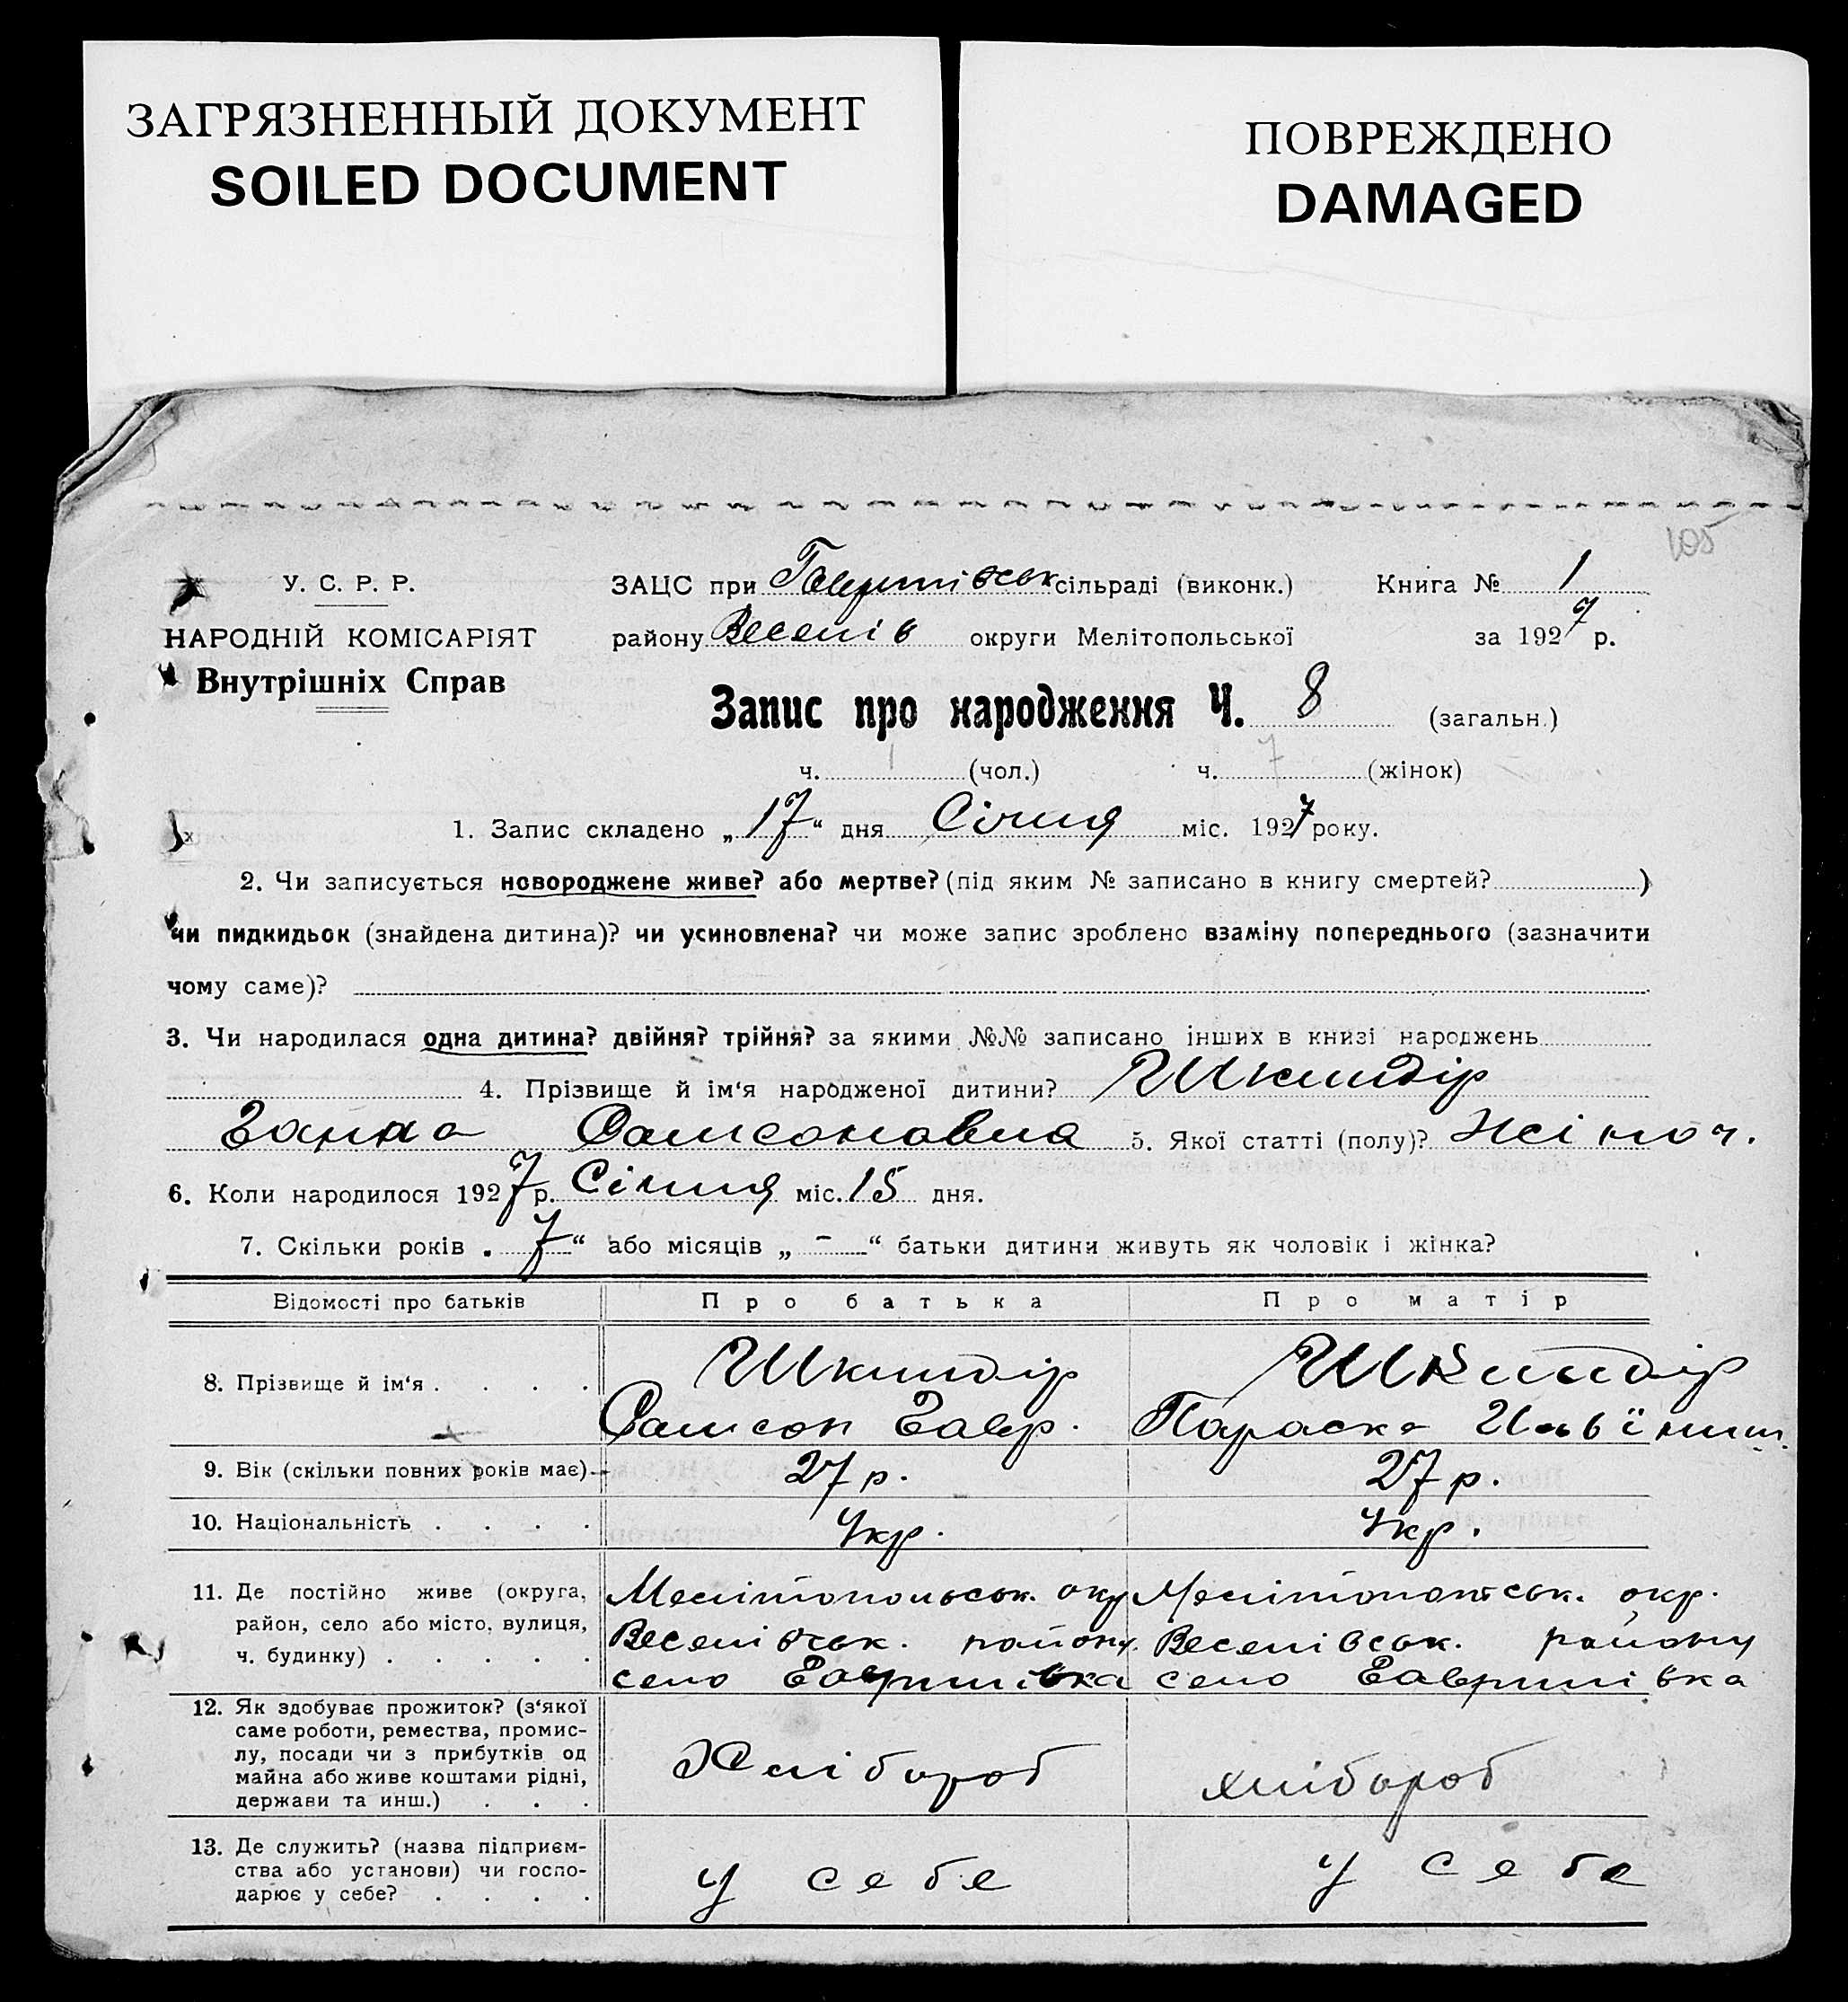 ЗАГРЯЗНЕННЫЙ ДОКУМЕНТ
SOILED DOCUMENT
ПОВРЕЖДЕНО
DAMAGED
105
У. С. Р. Р.
НАРОДНІЙ КОМІСАРІЯТ
Внутрішніх Справ
ЗАЦС при Гаврилівськ сільраді (виконк.) Книга № 1
району Веселів округи Мелітопольської за 1927 р.
Запис про народження Ч. 8 (загальн.)
ч. (чол.) ч. 7 (жінок)
1. Запис складено „17“ дня Січня міс. 1927 року.
2. Чи записується новороджене живе? або мертве? (під яким № записано в книгу смертей? )
чи пидкидьок (знайдена дитина)? чи усиновлена? чи може запис зроблено взаміну попереднього (зазначити
чому саме)?
3. Чи народилася одна дитина? двійня? трійня? за якими №№ записано інших в книзі народжень
4. Прізвище й ім‘я народженої дитини? Шкиндір
Ганна Самсоновна 5. Якої статті (полу)? Жіноч.
6. Коли народилося 1927 р. Січня міс. 15 дня.
7. Скільки років „ 7 “ або місяців „ - “ батьки дитини живуть як чоловік і жінка?
Відомості про батьків Про батька Про матір
8. Прізвище й ім‘я . . . . Шкиндір Шкиндір
Самсон Гавр. Параска
9. Вік (скільки повних років має) 27 р. 27 р.
10. Національність . . . . Укр. Укр.
11. Де постійно живе (округа, Мелітопольськ. окр Мелітопольськ. окр.
район, село або місто, вулиця, Веселівськ. району. Веселівськ. району
ч. будинку) . . . . . село Гаврилівка село Гаврилівка
12. Як здобуває прожиток? (з‘якої
саме роботи, ремества, промис-
лу, посади чи з прибутків од Хлібороб хлібороб
майна або живе коштами рідні,
держави та инш.) . . .
13. Де служить? (назва підприєм-
ства або установи) чи госпо- у себе у себе
дарює у себе? . . . .